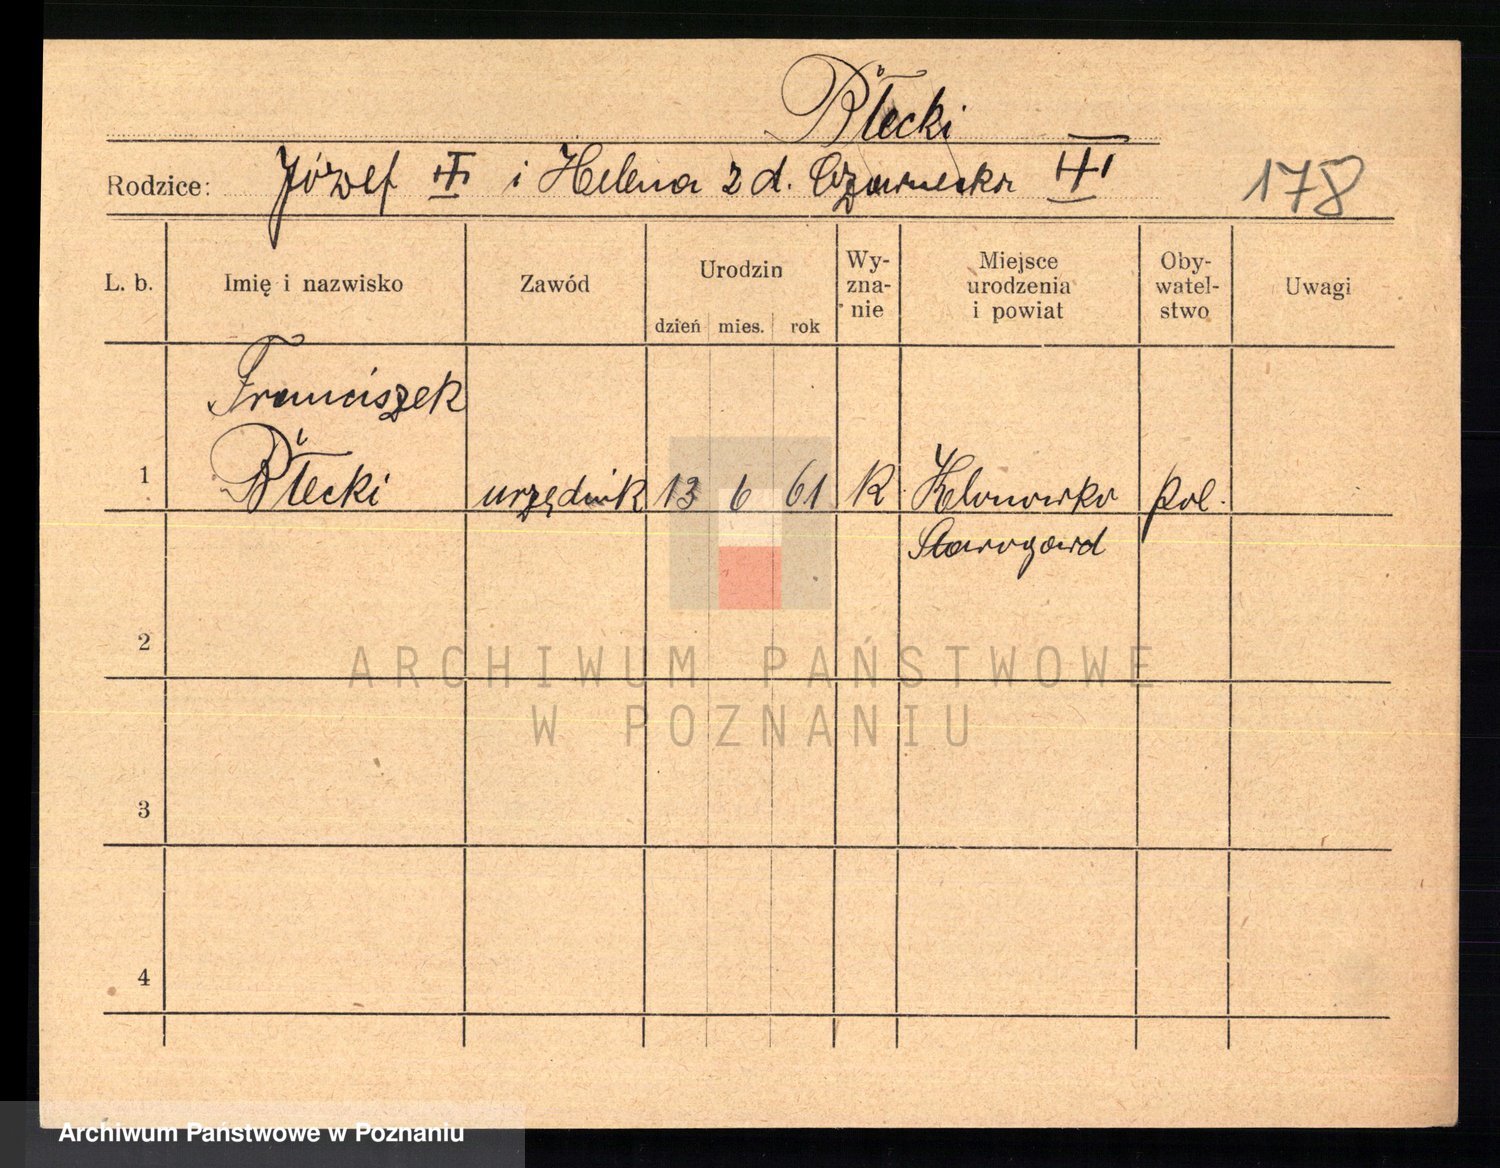 Błecki
Rodzice: Józef i Helena z d. Czarnecka
178
L. b. Imię i nazwisko Zawód Urodzin dzień mies. rok Wy-zna-nie Miejsce urodzenia i powiat Oby-watel-stwo Uwagi
Franciszek
1 Błecki urzędnik 13 6 61 R. Klonowka pol.
Starogard
2
3
4
ARCHIWUM PAŃSTWOWE
W POZNANIU
Archiwum Państwowe w Poznaniu